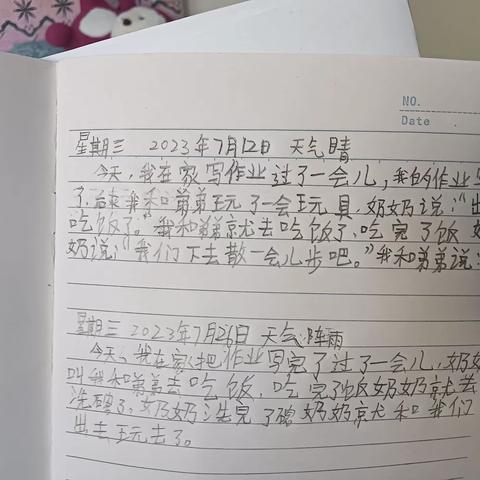 NO.
Date
星期三 2023年7月12日 天气晴
今天,我在家写作业过了一会儿,我的作业
了,结束我和弟弟玩了一会玩具,奶奶说:“出
吃饭了。”我和弟弟就去吃饭了,吃完了饭
奶说:“我们下去散一会儿步吧。”我和弟弟说:
星期三 2023年7月26日 天气阵雨
今天,我在家把作业写完了过了一会儿,奶奶
叫我和弟弟去吃饭,吃完了饭奶奶就去
洗碗了,奶奶洗完了碗奶奶就和我们
出去玩去了。